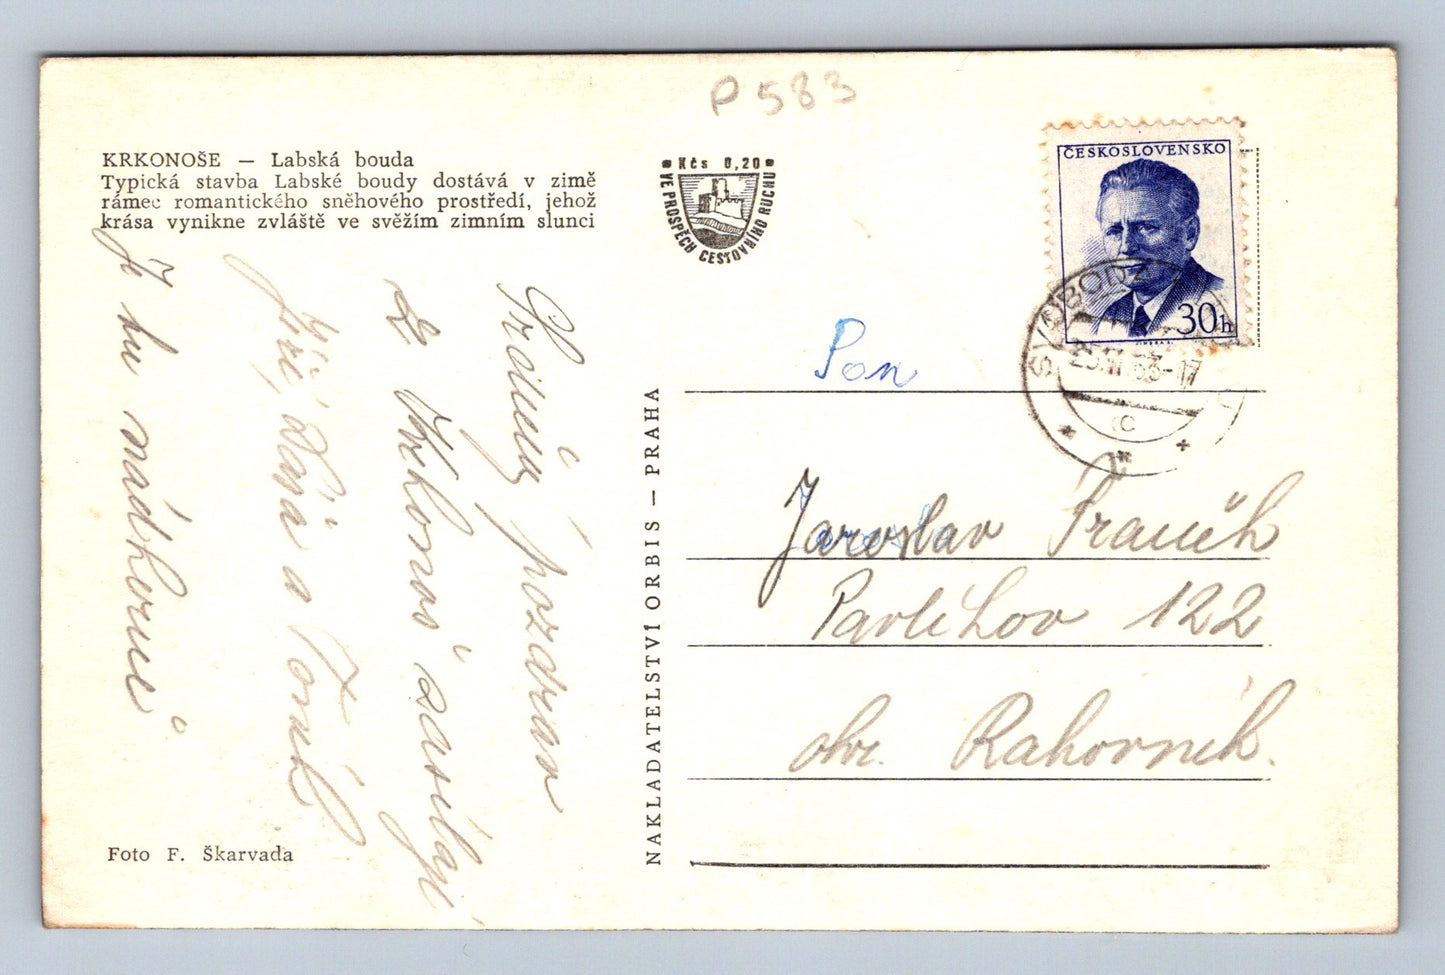 P 583
KRKONOŠE — Labská bouda
Typická stavba Labské boudy dostává v zimě
rámec romantického sněhového prostředí, jehož
krása vynikne zvláště ve svěžím zimním slunci
Kčs 0,20
VE PROSPĚCH CESTOVNÍHO RUCHU
ČESKOSLOVENSKO
30h
SVOBODA
-17
c
Srdečný pozdrav
z Krkonoš zasílají
Jiří, Dáša a Toník
Je tu nádherně
Foto F. Škarvada
NAKLADATELSTVÍ ORBIS — PRAHA
Pan
Jaroslav
Pavlikov 122
okr. Rakovník.